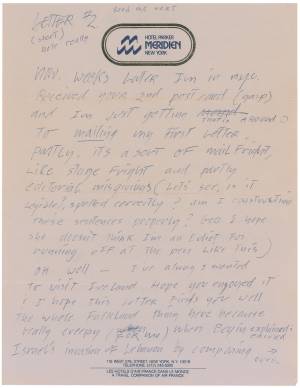 LETTER #2
read me next
(short)
not really
HOTEL PARKER
MERIDIEN
NEW YORK
weeks later I'm in nyc.
Received your 2nd post card (gasp)
and I'm just getting around
to mailing my first letter.
partly, its a sort of mail fright,
like stage fright and partly
editorial misgivings (let's see, is it
legible?, spelled correctly? am I constructing
these sentences properly? Gee I hope
she doesn't think I'm an Ediot for
running off at the pen like this)
oh well — I've always wanted
to visit Iceland. Hope you enjoyed it
& I hope this letter finds you well
The whole Falkland thing here became
really creepy (for me) when Begin explained
Israel's invasion of Lebanon by comparing
→ over
118 WEST 57th STREET, NEW YORK, N.Y. 10019
TELEPHONE: (212) 245-5000
LES HOTELS D'AIR FRANCE DANS LE MONDE
A TRAVEL COMPANION OF AIR FRANCE